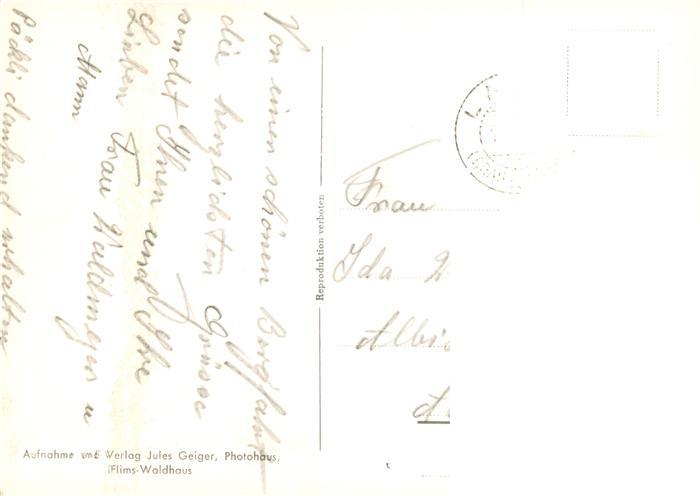 Von einen schönen Bergfahrt
die herzlichsten Grüsse
sendet Ihnen und Ihre
Lieben Frau Waldmeyer u
Mann
Päckli dankend erhalten
Reproduktion verboten
Frau
Ida
Albis
Aufnahme und Verlag Jules Geiger, Photohaus,
Flims-Waldhaus